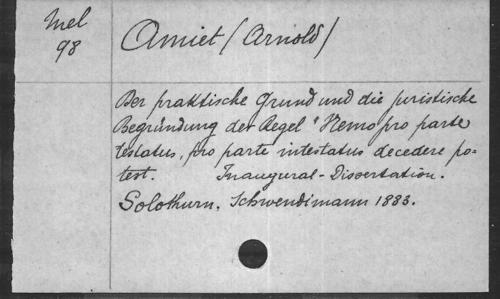 Mel
98
Amiet (Arnold)
Der praktische Grund und die juristische
Begründung der Regel "Nemo pro parte
testatus, pro parte intestatus decedere po-
test. Inaugural-Dissertation.
Solothurn, Schwendimann 1883.